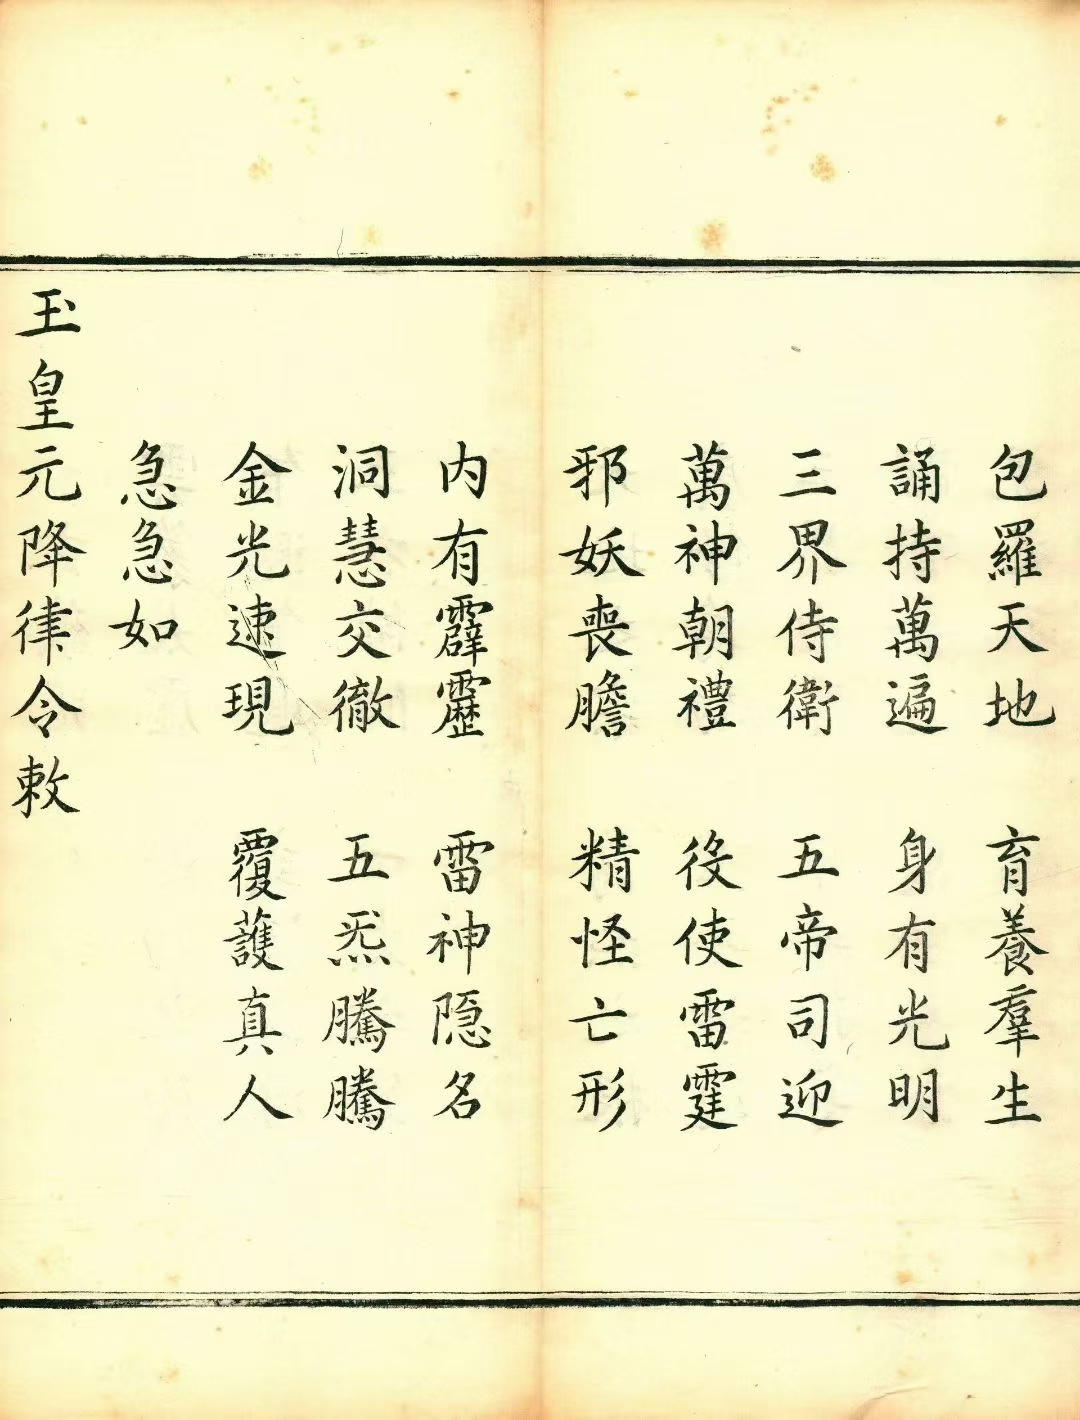 包羅天地 育養羣生
誦持萬遍 身有光明
三界侍衛 五帝司迎
萬神朝禮 役使雷霆
邪妖喪膽 精怪亡形
內有霹靂 雷神隐名
洞慧交徹 五炁騰騰
金光速現 覆護真人
急急如
玉皇元降律令敕